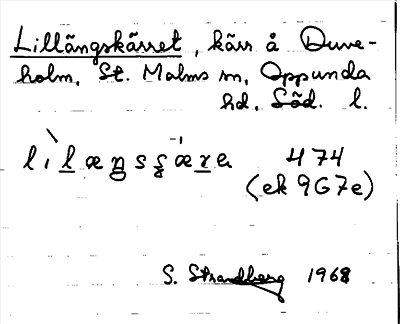 Lillängskärret, kärr å Duve-
holm, St. Malms sn, Oppunda
hd, Söd. l.
lìlæŋsʂæra 474
(ek 9G7e)
S. Strandberg 1968